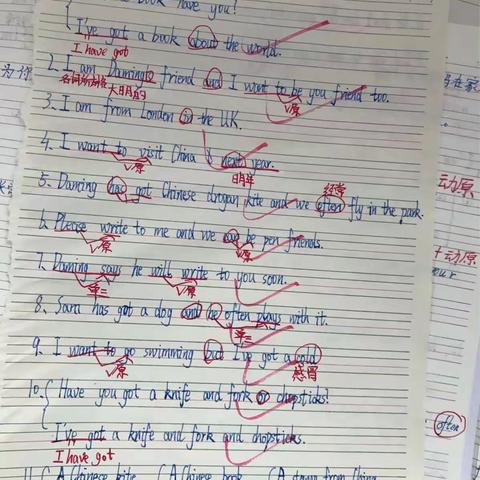 book have you?
I've got a book about the world.
I have got
2. I am Daming's friend and I want to be you friend too.
名词所有格 大明的 V原
3. I am from London in the UK.
4. I want to visit China next year.
V原 明年
经常
5. Daming has got Chinese dragon kite and we often fly in the park.
6. Please write to me and we can be pen friends.
V原 V原
7. Daming says he will write to you soon.
单三 V原
8. Sam has got a dog and he often plays with it.
单三
9. I want to go swimming but I've got a cold
V原 感冒
10. Have you got a knife and fork or chopsticks?
I've got a knife and fork and chopsticks.
I have got
A Chinese kite A Chinese book
为你
在家
动原
+动原
often